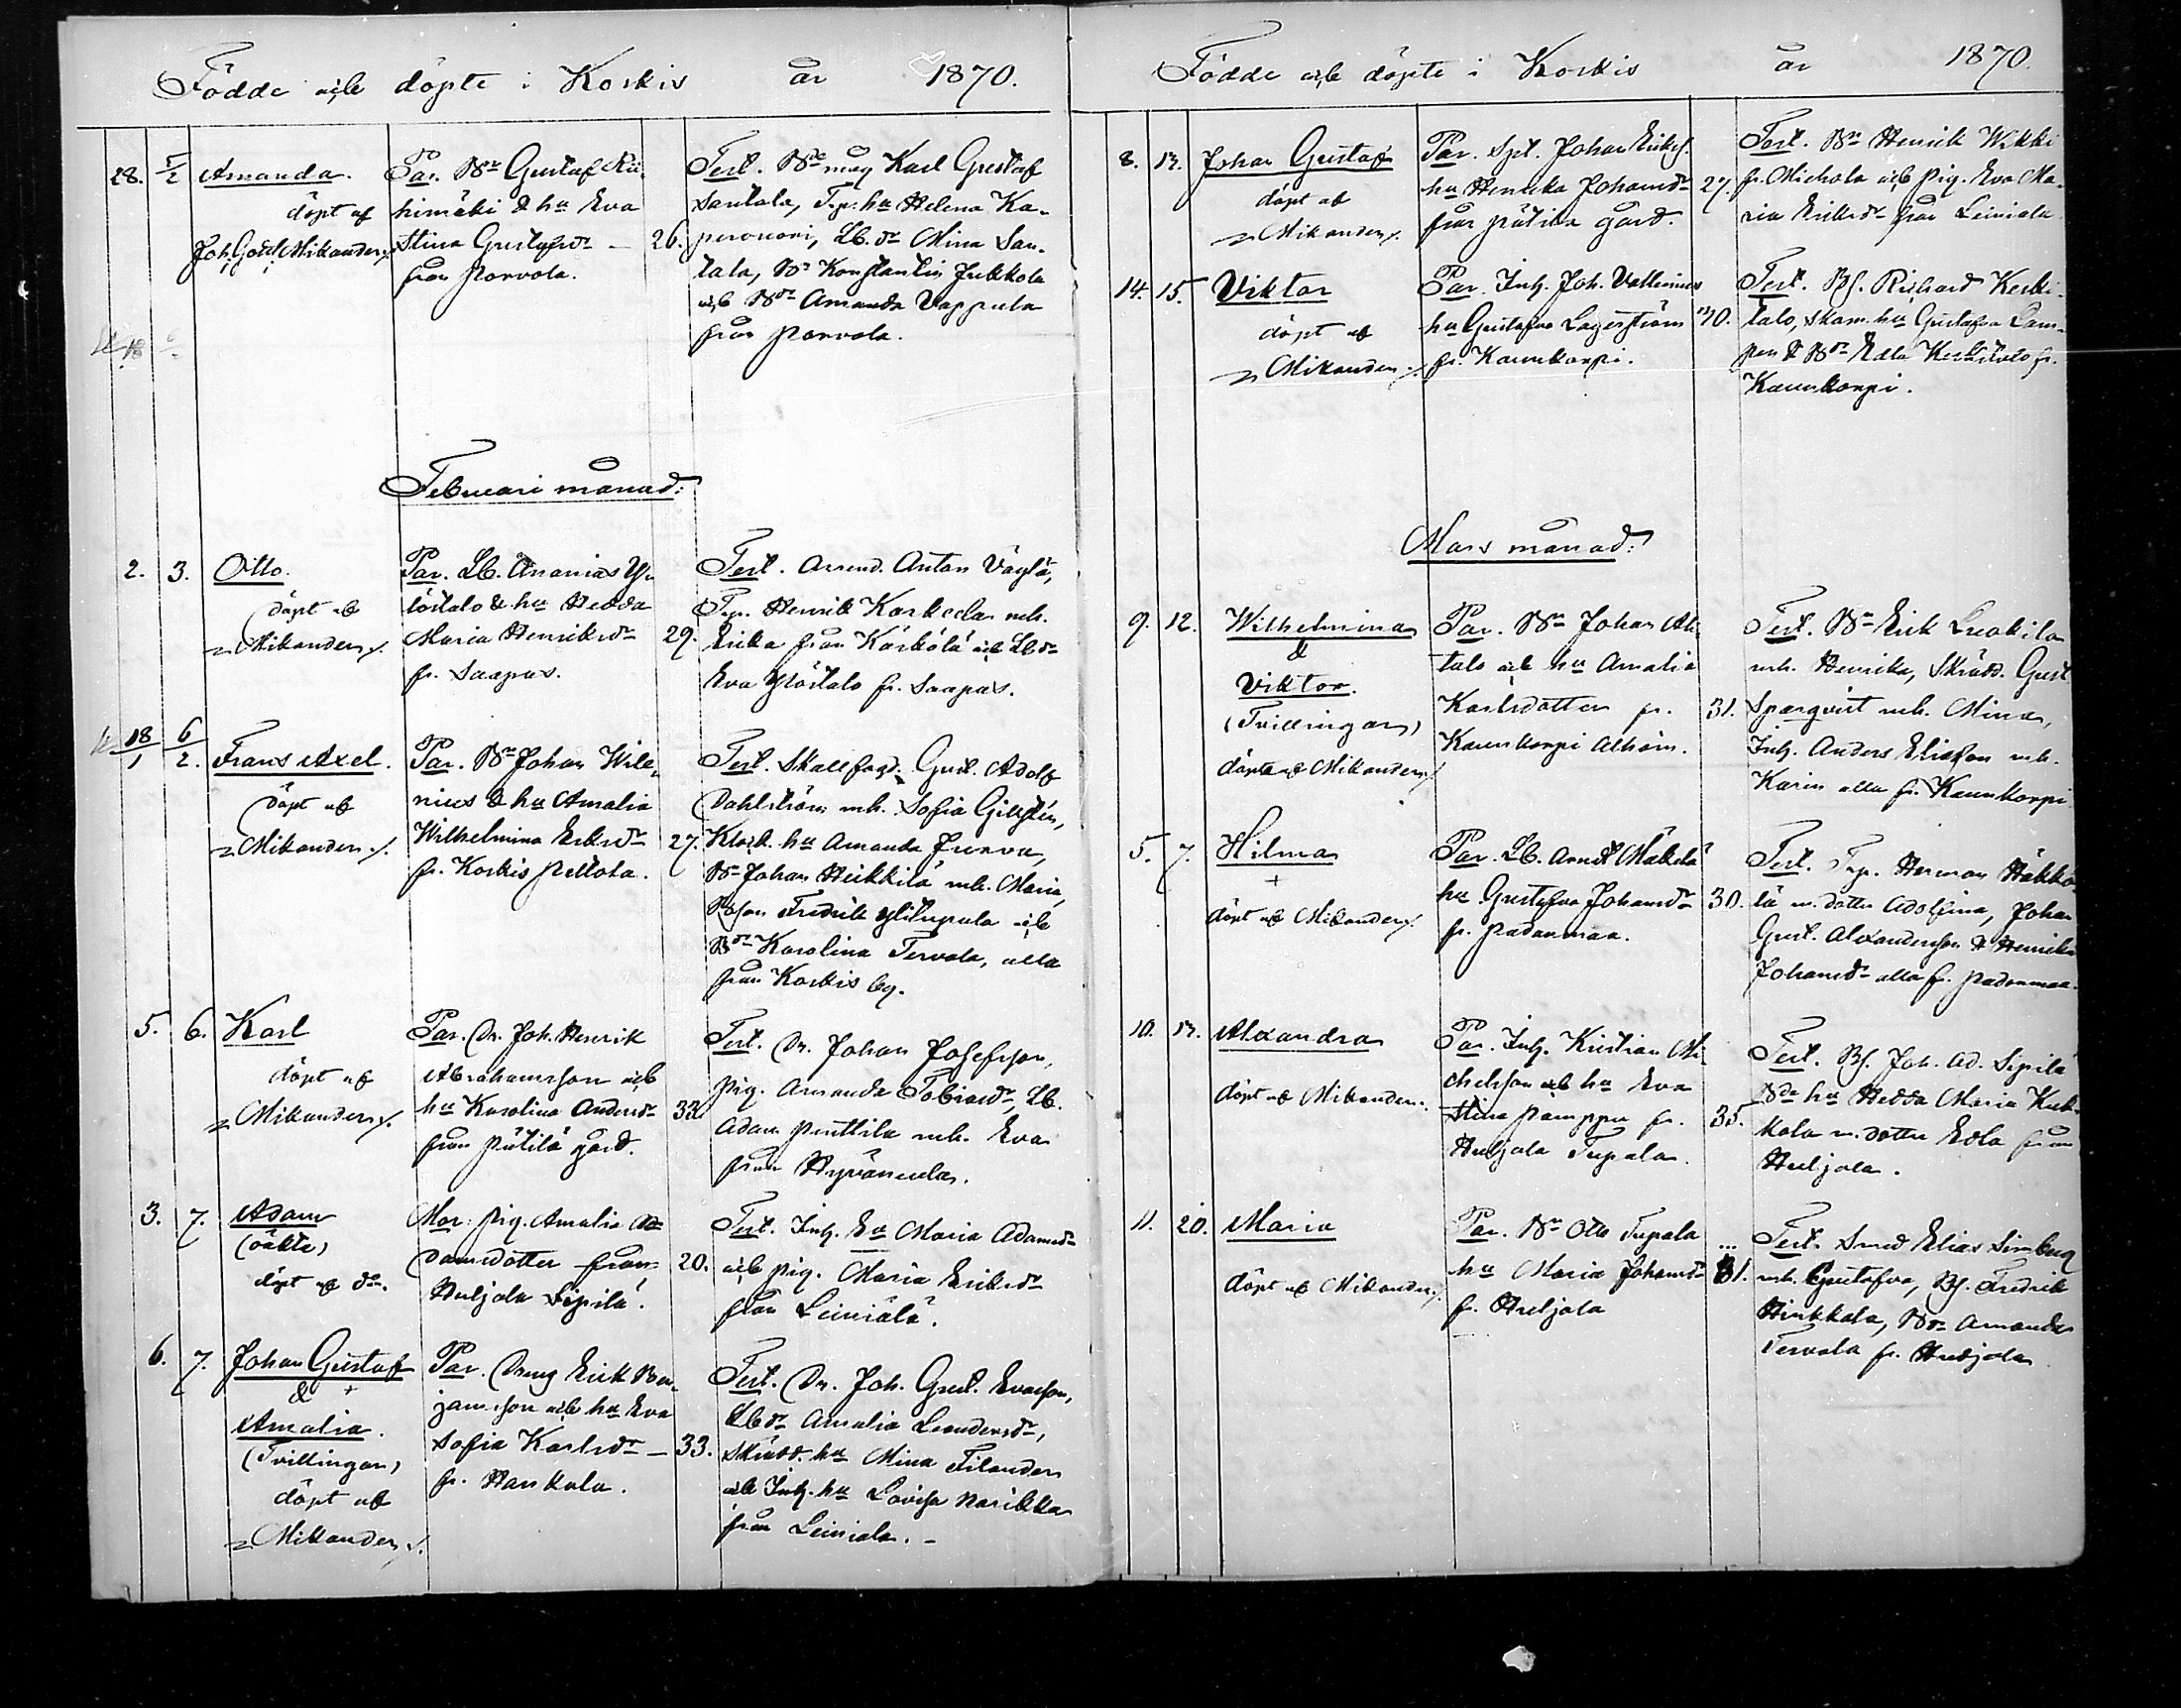 Födde och döpte i Koskis år 1870.
28. 5/2 Amanda.
döpt af
Joh. Gott. Mikander.
Par. Bn Gustaf Rii-
himäki & hu Eva
Stina Gustafsdr — 26.
från Porvola.
Test. Bne måg Karl Gustaf
Santala, Tp. hu Helena Ka-
peronovi, Lb. dr Mina San-
tala, Bs Konstantin Jukkola
och Bdr Amanda Vappula
från Porvola.
Februari månad:
2. 3. Otto.
döpt af
Mikander.
Par. Lb. Ananias Yli-
löstalo & hu Hedda
Maria Henriksdr 29.
fr. Saapas.
Test. Arrend. Anton Väylä,
Tp. Henrik Korkeela m.h.
Erika från Kärkölä och Lbdr
Eva Ylöstalo fr. Saapas.
18/1 6/2. Frans Axel.
döpt af
Mikander.
Par. Bn Johan Wile-
nius & hu Amalia
Wilhelmina Eriksdr 27.
fr. Koskis Peltola.
Test. Skallfogd. Gust. Adolf
Dahlström m.h. Sofia Gillstén,
Klock. hu Amanda Jurva,
Bn Johan Heikkilä m.h. Maria,
Bson Fredrik Ylitupala och
Bdr Karolina Tervala, alla
från Koskis by.
5. 6. Karl
döpt af
Mikander.
Par. Dr. Joh. Henrik
Abrahamsson och
hu Karolina Andersdr 33.
från Pätilä gård.
Test. Dr. Johan Josefsson,
Pig. Amanda Tobiasdr, Lb.
Adam Penttila m.h. Eva
från Hyvänenla.
3. 7. Adam
(oäkta)
döpt af do.
Mor: Pig. Amalia A-
damsdotter från 20.
Huljala Sipilä.
Test. Inh. Ea Maria Adamsdr
och pig. Maria Eriksdr
från Leiniälä.
6. 7. Johan Gustaf
& +
Amalia.
(Tvillingar)
döpt af
Mikander.
Par. Dreng Erik Ben-
jamsson och hu Eva
Sofia Karlsdr — 33.
fr. Hankala.
Test. Dr. Joh. Gust. Evasson,
Lbdr Amalia Leandersdr,
Skrädd. hu Mina Filander
och Inh. hu Lovisa Narikka
från Leiniala. –
Födde och döpte i Koskis år 1870.
8. 13. Johan Gustaf
döpt af
Mikander.
Par. Spt. Johan Eriks.
hu Henrika Johansdr 27.
från Pätilä gård.
Test. Bn Henrik Wikki
fr. Michola och Pig. Eva Ma-
ria Eriksdr från Leiniala
14. 15. Viktor
döpt af
Mikander.
Par. Inh. Joh. Vallenius
hu Gustafva Lagerström 40.
fr. Kaunkorpi.
Test. Bs. Richard Keski-
talo, Skom. hu Gustafva Lam-
pen & Bdr Edla Keskitalo fr.
Kaunkorpi.
Mars månad:
9. 12. Wilhelmina
&
Viktor.
(Tvillingar)
döpte af Mikander.
Par. Bn Johan Ali-
talo och hu Amalia
Karlsdotter fr. 31.
Kaunkorpi Alhoin.
Test. Bn Erik Luokila
m.h. Henrika, Skrädd. Gust
Sparqvist m.h. Mina,
Inh. Anders Eliasson m.h.
Karin alla fr. Kaunkorpi
5. 7. Hilma
+
döpt af Mikander.
Par. Lb. Arndt Mäkelä
hu Gustafva Johansdr 30.
fr. Padanmaa.
Test. Tp. Herman Häkkö-
lä m. dotter Adolfina, Johan
Gust. Alexandersson & Henrika
Johansdr alla fr. Padanmaa.
10. 13. Alexandra
döpt af Mikander.
Par. Inh. Kristian Mi-
chelsson och hu Eva
Stina Pamppu fr. 35.
Huljala Tupala.
Test. Bs. Joh. Ad. Sipilä
Bde hu Hedda Maria Kuk-
kola m. dotter Edla från
Huljala.
11. 20. Maria
döpt af Mikander.
Par. Bn Otto Tupala
hu Maria Johansdr 31.
fr. Huljala
Test. Smed Elias Limberg
m.h. Gustafva, Bs. Fredrik
Hinkkala, Bdr Amanda
Tervala fr. Huljala